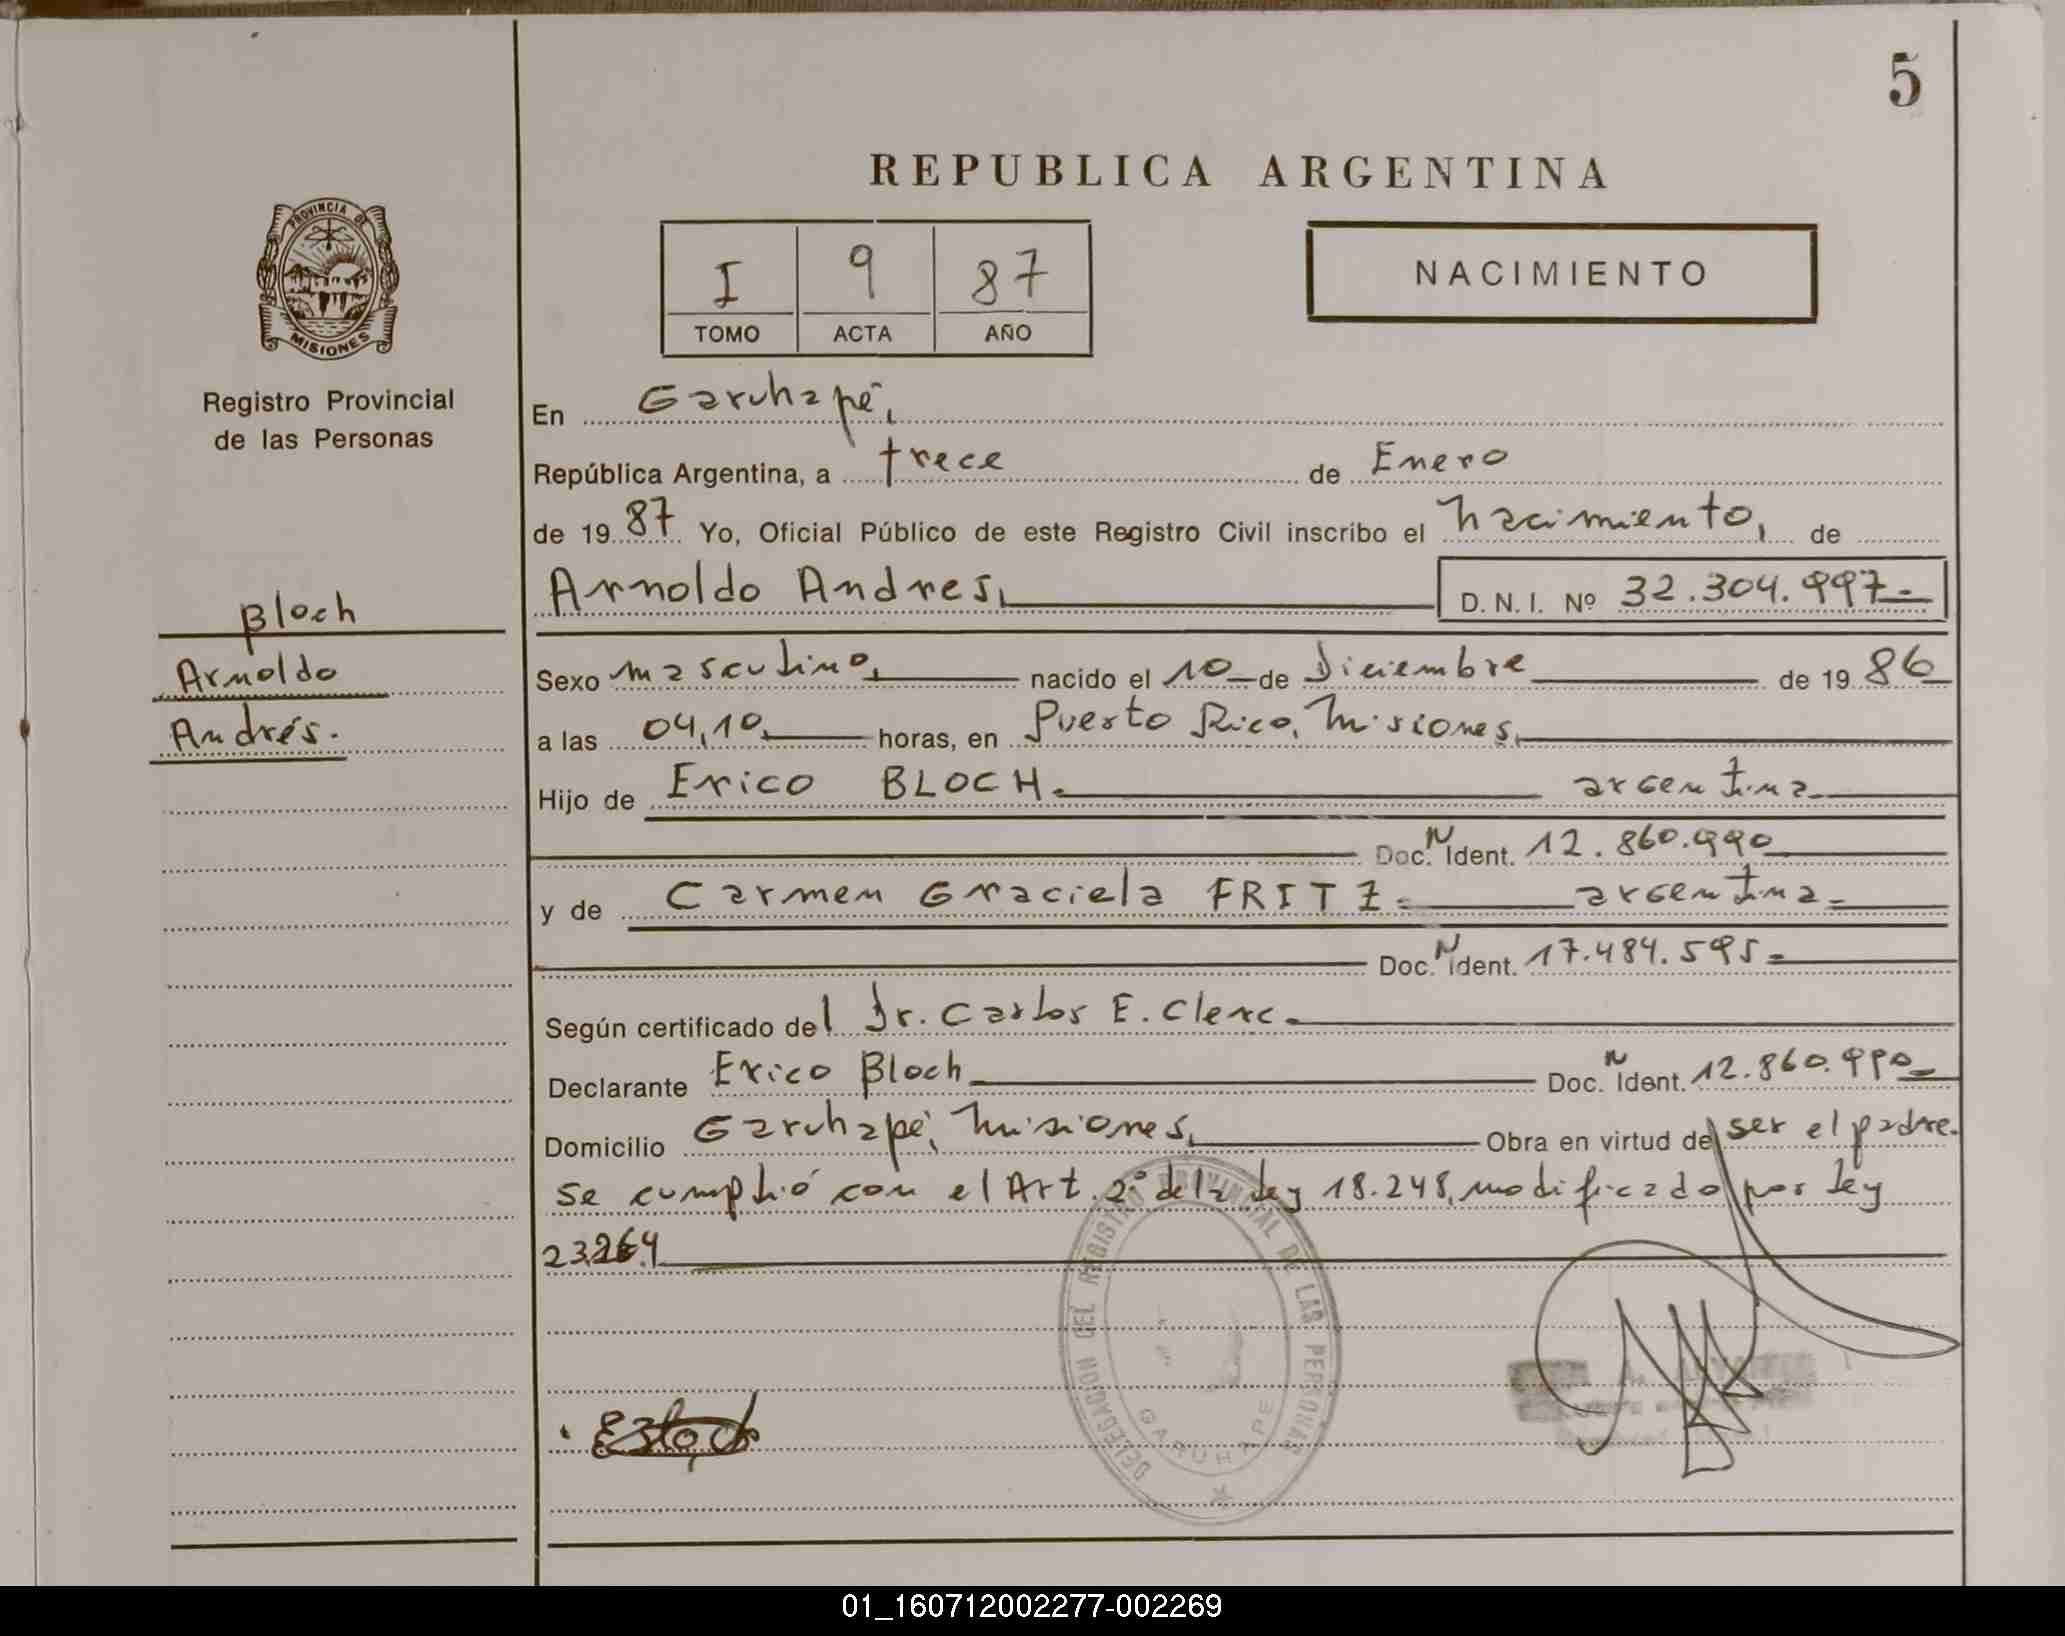 5
REPUBLICA ARGENTINA
PROVINCIA DE
MISIONES
Registro Provincial
de las Personas
I 9 87
TOMO ACTA AÑO
NACIMIENTO
En Garuhapé,
República Argentina, a trece de Enero
de 1987 Yo, Oficial Público de este Registro Civil inscribo el nacimiento, de
Arnoldo Andres, D. N. I. Nº 32.304.997-
Bloch
Arnoldo
Andrés.
Sexo masculino, nacido el 10 de Diciembre de 1986
a las 04,10, horas, en Puerto Rico, Misiones,
Hijo de Erico BLOCH. argentina
Doc. N Ident. 12.860.990
y de Carmen Graciela FRITZ. argentina
Doc. N Ident. 17.484.595
Según certificado del Dr. Carlos E. Clerc.
Declarante Erico Bloch Doc. N Ident. 12.860.990
Domicilio Garuhapé, Misiones, Obra en virtud de ser el padre.
Se cumplió con el Art. 2° de la Ley 18.248, modificado por Ley
23.264
DELEGACION DEL REGISTRO PROVINCIAL DE LAS PERSONAS
GARUHAPE
01_160712002277-002269